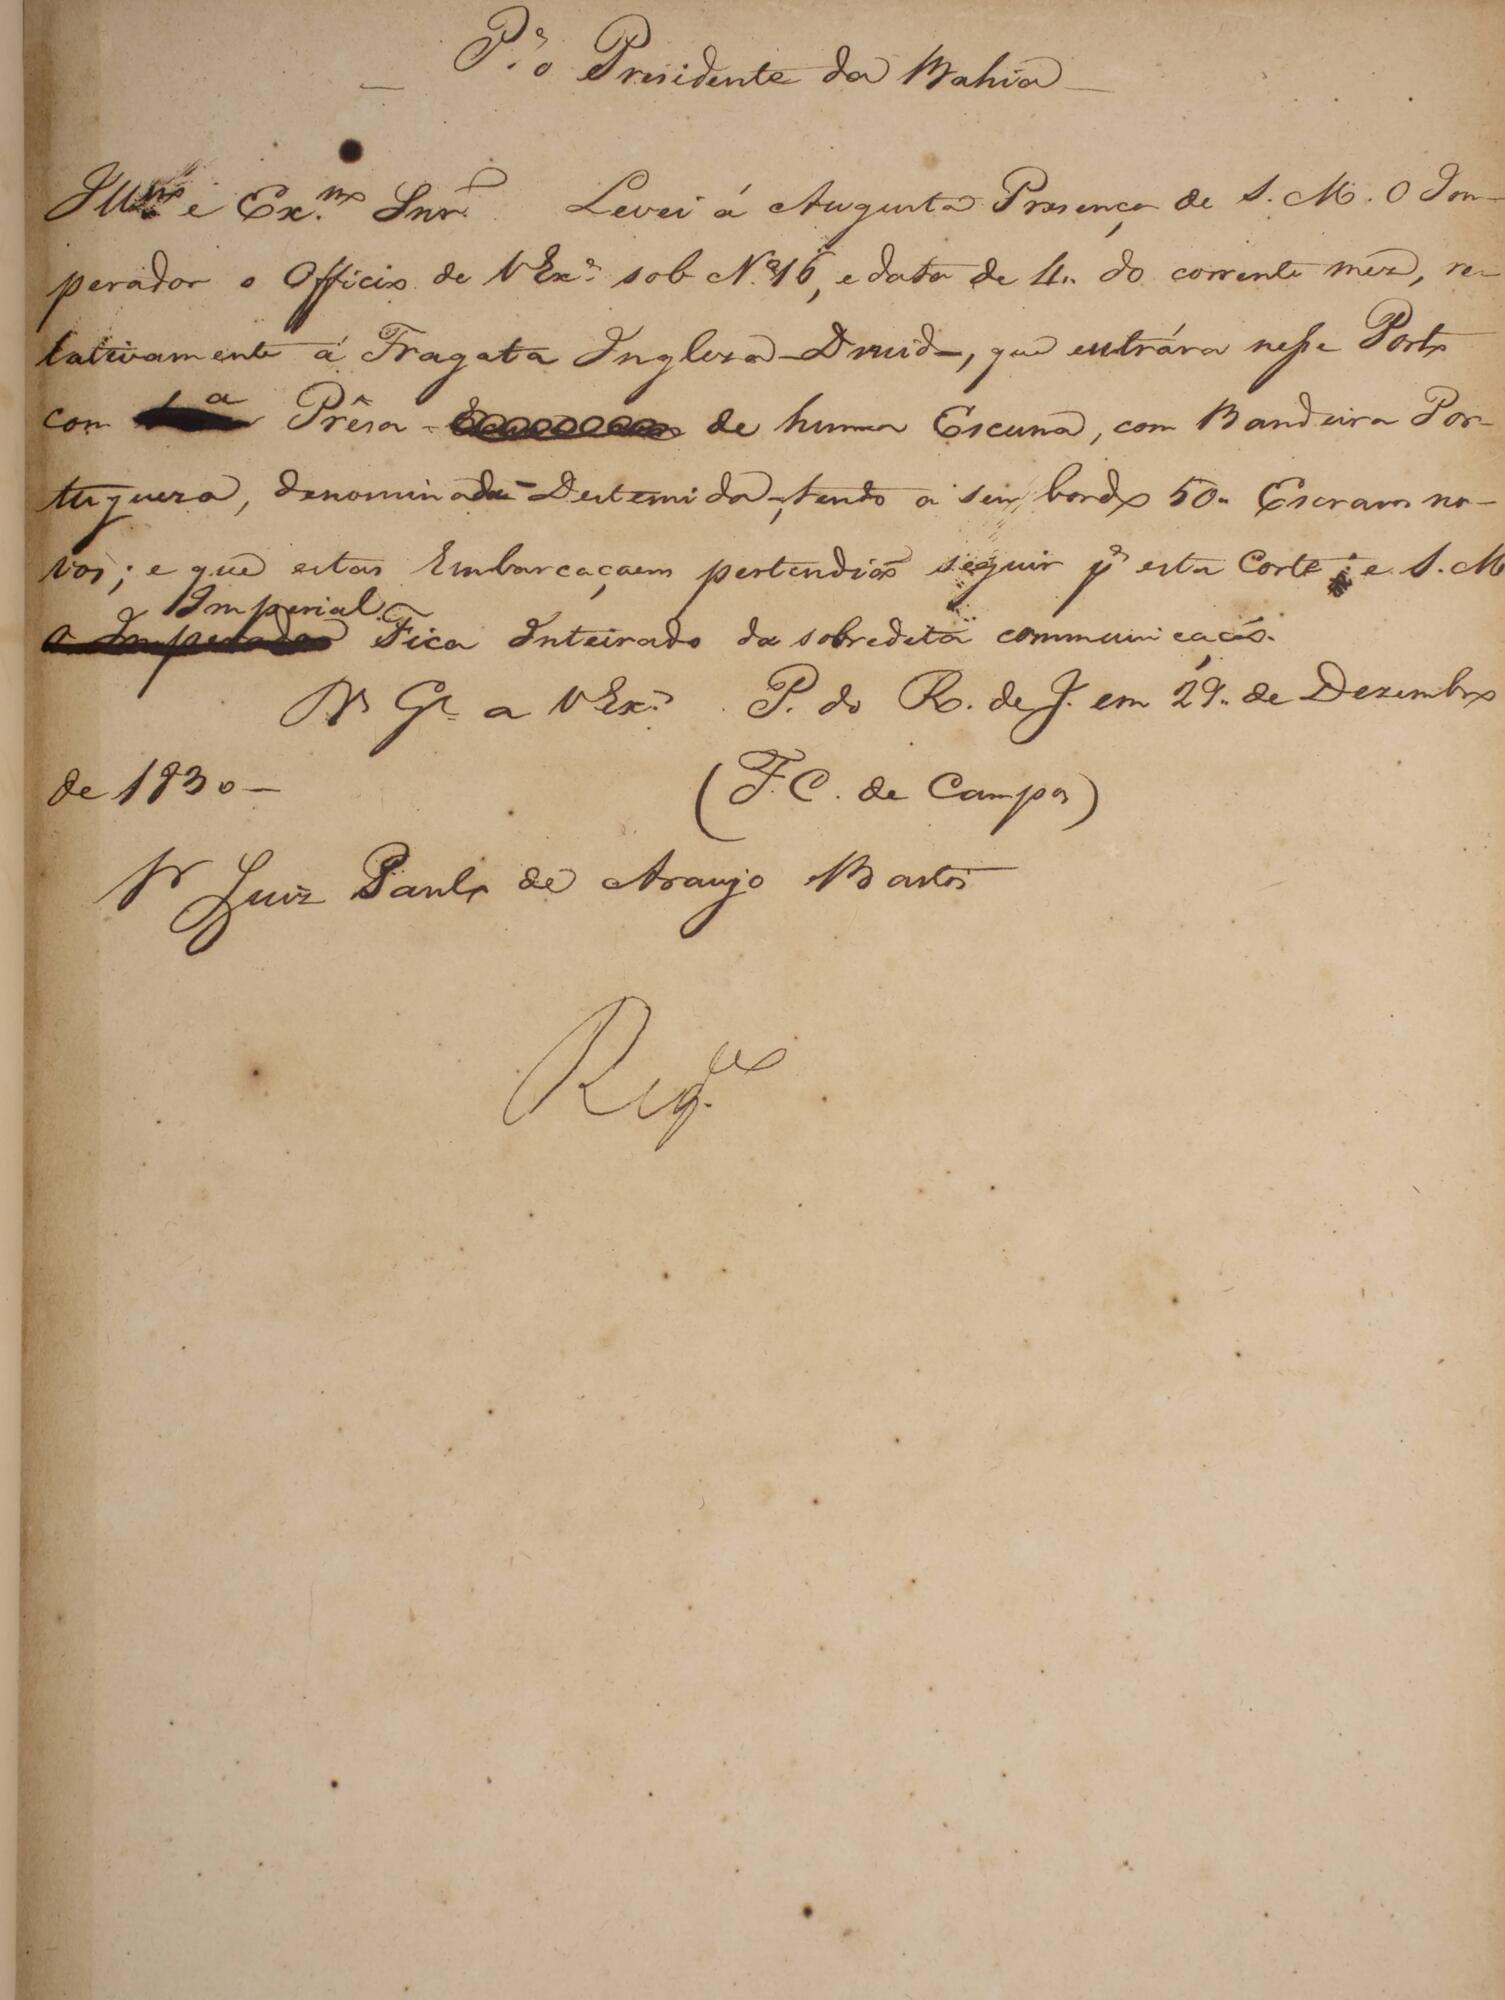 P.ª o Presidente da Bahia
Illmo. e Ex.mo Snr. Levei á Augusta Presença de S. M. O Im-
perador o Officio de V Ex.ª sob N.º 16, e data de 4. do corrente mez, re-
lativamente á Fragata Ingleza - Druid -, que entrára nesse Porto
com a Prêsa de huma Escuna, com Bandeira Por-
tugueza, denominada - Destemida -, tendo a seu bordo 50. Escravos no-
vos; e que estas Embarcaçoens pertendião seguir pª esta Corte; e S. M
Imperial
o Imperador Fica Inteirado da sobredita communicação.
Ds Ge a V Ex.ª P. do R. de J. em 29. de Dezembro
de 1830 -
(F. C. de Campos)
Sr Luiz Paulo de Araujo Bastos